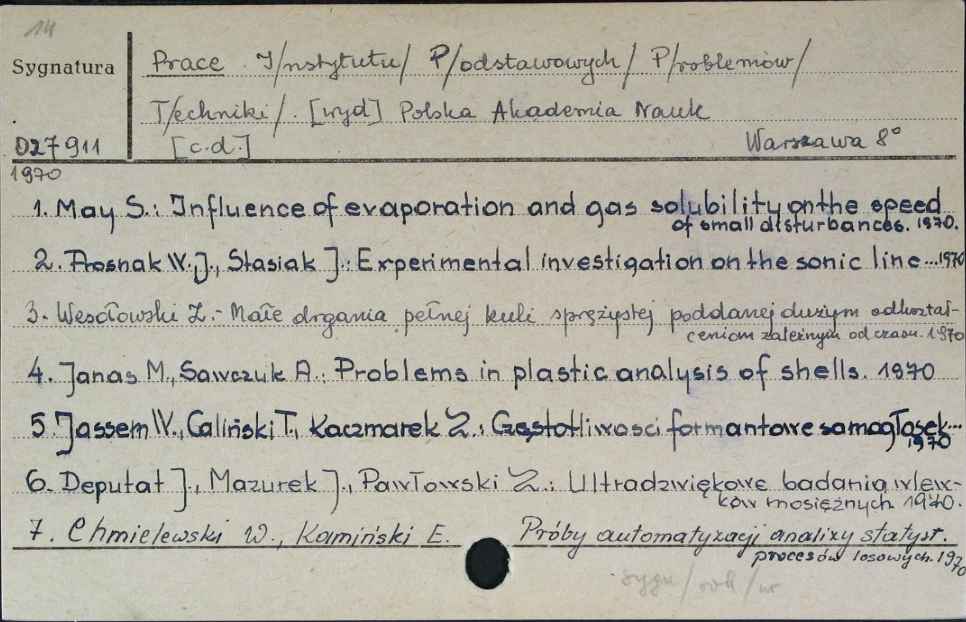 14
Sygnatura
Prace I/nstytutu/ P/odstawowych/ P/roblemów/
T/echniki/. [wyd] Polska Akademia Nauk
D27911
[c.d.] Warszawa 8°
1970
1. May S.: Influence of evaporation and gas solubility on the speed
of small disturbances. 1970.
2. Prosnak W.J., Stasiak J.: Experimental investigation on the sonic line...1970
3. Wesołowski Z.- Małe drgania pełnej kuli sprężystej poddanej dużym odkształ-
ceniom zależnym od czasu. 1970
4. Janas M., Sawczuk A.: Problems in plastic analysis of shells. 1970
5. Jassem W., Caliński T., Kaczmarek Z.: Częstotliwosci formantowe samogłosek...
1970
6. Deputat J., Mazurek J., Pawłowski Z.: Ultradzwiękowe badania wlew-
ków mosiężnych. 1970.
7. Chmielewski W., Kamiński E. Próby automatyzacji analizy statyst.
procesów losowych. 1970
sygn/rok/nr